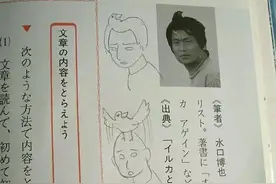 《筆者》 水口博也
リスト。著書に「オ
カ アゲイン」など
《出典》「イルカと
文章の内容をとらえよう
▼次のような方法で内容をと
(1) 文章を読んで、初めて知